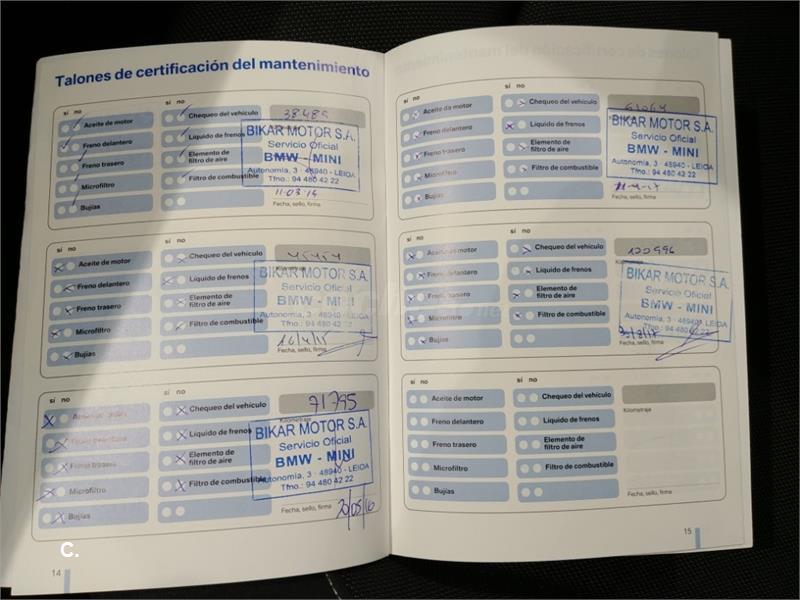 Talones de certificación del mantenimiento
sí no
Aceite de motor
Freno delantero
Freno trasero
Microfiltro
Bujías
Chequeo del vehículo
Líquido de frenos
Elemento de
filtro de aire
Filtro de combustible
38489
BIKAR MOTOR S.A.
Servicio Oficial
BMW - MINI
Autonomía, 3 - 48940 - LEIOA
Tfno.: 94 480 42 22
11-03-14
Fecha, sello, firma
sí no
Aceite de motor
Freno delantero
Freno trasero
Microfiltro
Bujías
sí no
Chequeo del vehículo
Líquido de frenos
Elemento de
filtro de aire
Filtro de combustible
Kilometraje
BIKAR MOTOR S.A.
Servicio Oficial
BMW - MINI
Autonomía, 3 - 48940 - LEIOA
Tfno.: 94 480 42 22
16/4/15
Fecha, sello, firma
sí no
Aceite de motor
Freno delantero
Freno trasero
Microfiltro
Bujías
sí no
Chequeo del vehículo
Líquido de frenos
Elemento de
filtro de aire
Filtro de combustible
71795
Kilometraje
BIKAR MOTOR S.A.
Servicio Oficial
BMW - MINI
Autonomía, 3 - 48940 - LEIOA
Tfno.: 94 480 42 22
Fecha, sello, firma
20/05/16
C.
14
sí no
Aceite de motor
Freno delantero
Freno trasero
Microfiltro
Bujías
sí no
Chequeo del vehículo
Líquido de frenos
Elemento de
filtro de aire
Filtro de combustible
BIKAR MOTOR S.A.
Servicio Oficial
BMW - MINI
Autonomía, 3 - 48940 - LEIOA
Tfno.: 94 480 42 22
Fecha, sello, firma
sí no
Aceite de motor
Freno delantero
Freno trasero
Microfiltro
Bujías
sí no
Chequeo del vehículo
Líquido de frenos
Elemento de
filtro de aire
Filtro de combustible
120996
Kilometraje
BIKAR MOTOR S.A.
Servicio Oficial
BMW - MINI
Autonomía, 3 - 48940 - LEIOA
Tfno.: 94 480 42 22
Fecha, sello, firma
sí no
Aceite de motor
Freno delantero
Freno trasero
Microfiltro
Bujías
sí no
Chequeo del vehículo
Líquido de frenos
Elemento de
filtro de aire
Filtro de combustible
Kilometraje
Fecha, sello, firma
15